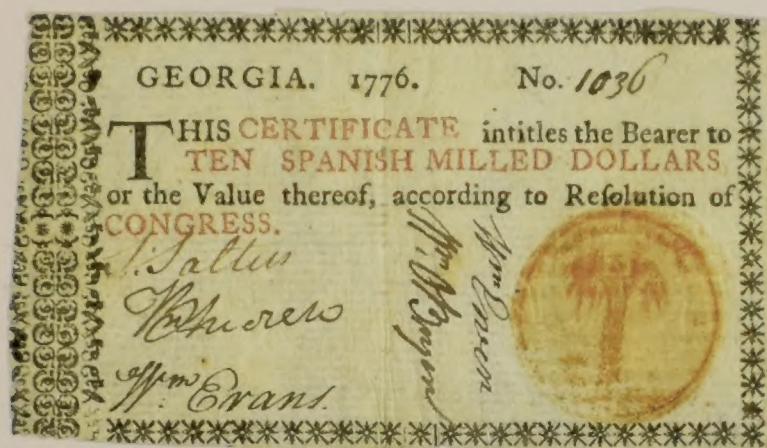 GEORGIA. 1776. No. 1036
THIS CERTIFICATE intitles the Bearer to
TEN SPANISH MILLED DOLLARS
or the Value thereof, according to Reſolution of
CONGRESS.
Saltus
Wm Evans.